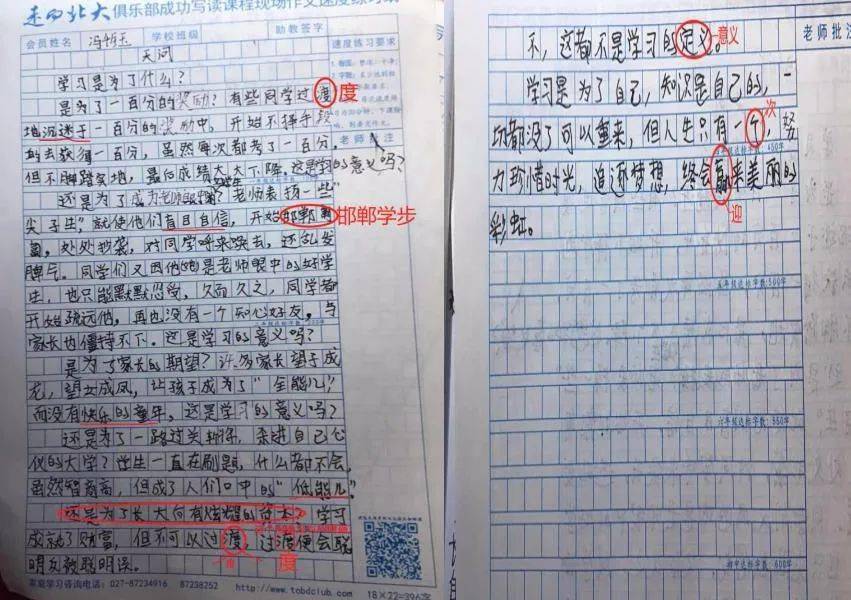 走四北大俱乐部成功写读课程现场作文速度练习纸
会员姓名 学校班级 助教签字 速度练习要求
天问
学习是为了什么？
是为了一百分的奖励？有些同学过渡 度
地沉迷于一百分的奖励中，开始不择手段
的去获得一百分，虽然每次都考了一百分，
但不脚踏实地，最后成绩大大下降。这是学习的意义吗？
还是为了成为老师眼中 老师表扬一些"
尖子生"，就使他们盲目自信，开始邯郸 邯郸学步
处处抄袭，对同学呼来唤去，还乱发
脾气。同学们又因他她是老师眼中的好学
生，也只能默默忍受，久而久之，同学都
开始疏远他，再也没有一个知心好友。与
家长也僵持不下。这是学习的意义吗？
是为了家长的期望？许多家长望子成
龙，望女成凤，让孩子成为了"全能儿"，
而没有快乐的童年。这是学习的意义吗？
还是为了一路过关斩将，杀进自己心
仪的大学？学生一直在刷题，什么都不会，
虽然智商高，但成了人们口中的"低能儿"。
还是为了长大向有炫耀的资本？学习
成就了财富，但不可以过渡，过渡便会聪
度 度
明反被聪明误。
家庭学习咨询电话：027-87234916 87238252 http://www.tobdclub.com 18×22=396字
老师批注
不，这都不是学习的定义。 意义
学习是为了自己，知识是自己的，一
切都没了可以重来，但人生只有一个，努 次
力珍惜时光，追逐梦想，终会赢来美丽的
迎
彩虹。
五年级达标字数：500字
六年级达标字数：550字
初中达标字数：600字